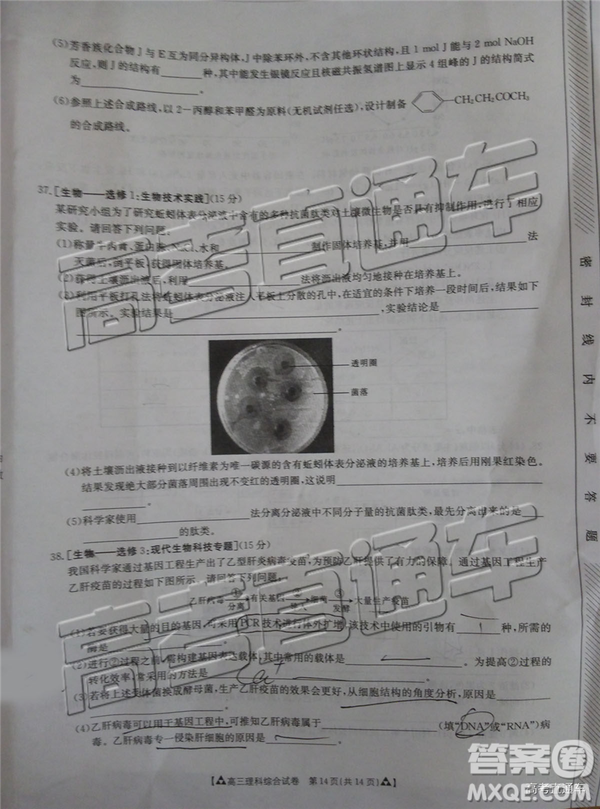 (5)芳香族化合物J与E互为同分异构体,J中除苯环外,不含其他环状结构,且1 mol J能与2 mol NaOH
反应,则J的结构共有______种,其中能发生银镜反应且核磁共振氢谱图上显示4组峰的J的结构简式
为______。
(6)参照上述合成路线,以2-丙醇和苯甲醛为原料(无机试剂任选),设计制备 CH₂CH₂COCH₃
的合成路线。
37.[生物——选修1:生物技术实践](15分)
某研究小组为了研究蚯蚓体表分泌液中含有的多种抗菌肽类对土壤微生物是否具有抑制作用,进行了相应
实验。请回答下列问题。
(1)称量牛肉膏、蛋白胨、水和______制作固体培养基,并用______法
灭菌后,倒平板,获得固体培养基。
(2)获得土壤沥出液后,利用______法将沥出液均匀地接种在培养基上。
(3)利用平板打孔法将蚯蚓体表分泌液注入平板上分散的孔中,在适宜的条件下培养一段时间后,结果如
图所示。______,实验结论是______
______。
透明圈
菌落
(4)将土壤沥出液接种到以纤维素为唯一碳源的含有蚯蚓体表分泌液的培养基上,培养后用刚果红染色。
结果发现绝大部分菌落周围出现不变红的透明圈,这说明______
______。
(5)科学家使用______法分离分泌液中不同分子量的抗菌肽类,最先分离出来的是
______的肽类。
38.[生物——选修3:现代生物科技专题](15分)
我国科学家通过基因工程生产出了乙型肝炎病毒疫苗,为预防乙肝提供了有力的保障。通过基因工程生产
乙肝疫苗的过程如下图所示。请回答下列问题。
乙肝病毒 ① 分离 基因 ② 细菌 ③ 发酵 大量生产疫苗
(1)若要获得大量的目的基因,可采用PCR技术进行体外扩增,该技术中使用的引物有______种,所需的
酶是______。
(2)进行②过程之前,需构建基因表达载体,其中常用的载体是______。为提高②过程的
转化效率,常采用的方法是______。
(3)若将上述受体菌换成酵母菌,生产乙肝疫苗的效果会更好,从细胞结构的角度分析,原因是______
______。
(4)乙肝病毒可以用于基因工程中,可推知乙肝病毒属于______(填“DNA”或“RNA”)病
毒。乙肝病毒专一侵染肝细胞的原因是______。
高三理科综合试卷 第14页(共14页)
密封线内不要答题
高考直通车
高考直通车
答案圈
MXQE.COM